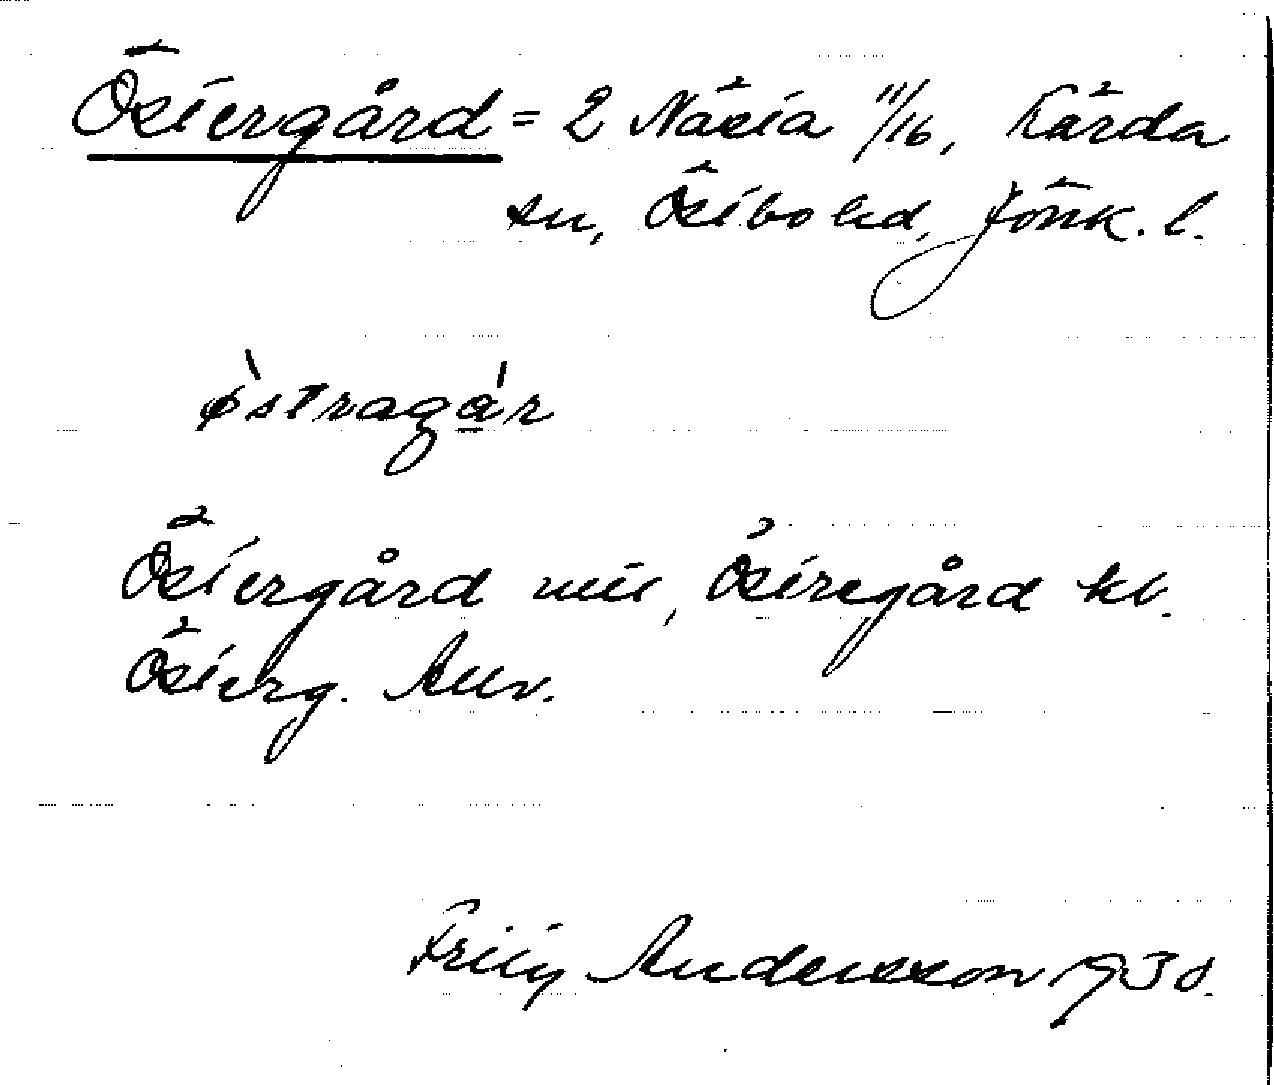 Östergård = 2 Nästa 11/16, Kärda
sn, Östbo hd, Jönk. l.
ø̀stragá̱r
Östergård mtl, Östregård kt.
Österg. Allm.
Fritiof Andersson 1930.